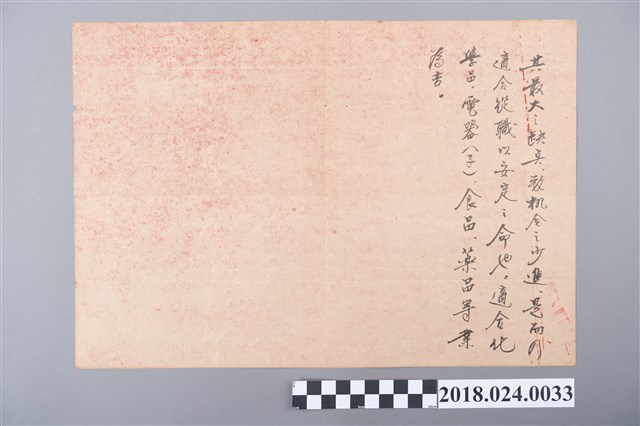 其最大之缺矣、致机会之少進、是而乃
適合從職以安定之命也。適合化
學品、電器(子)、食品、藥品等業
為吉。
2018.024.0033